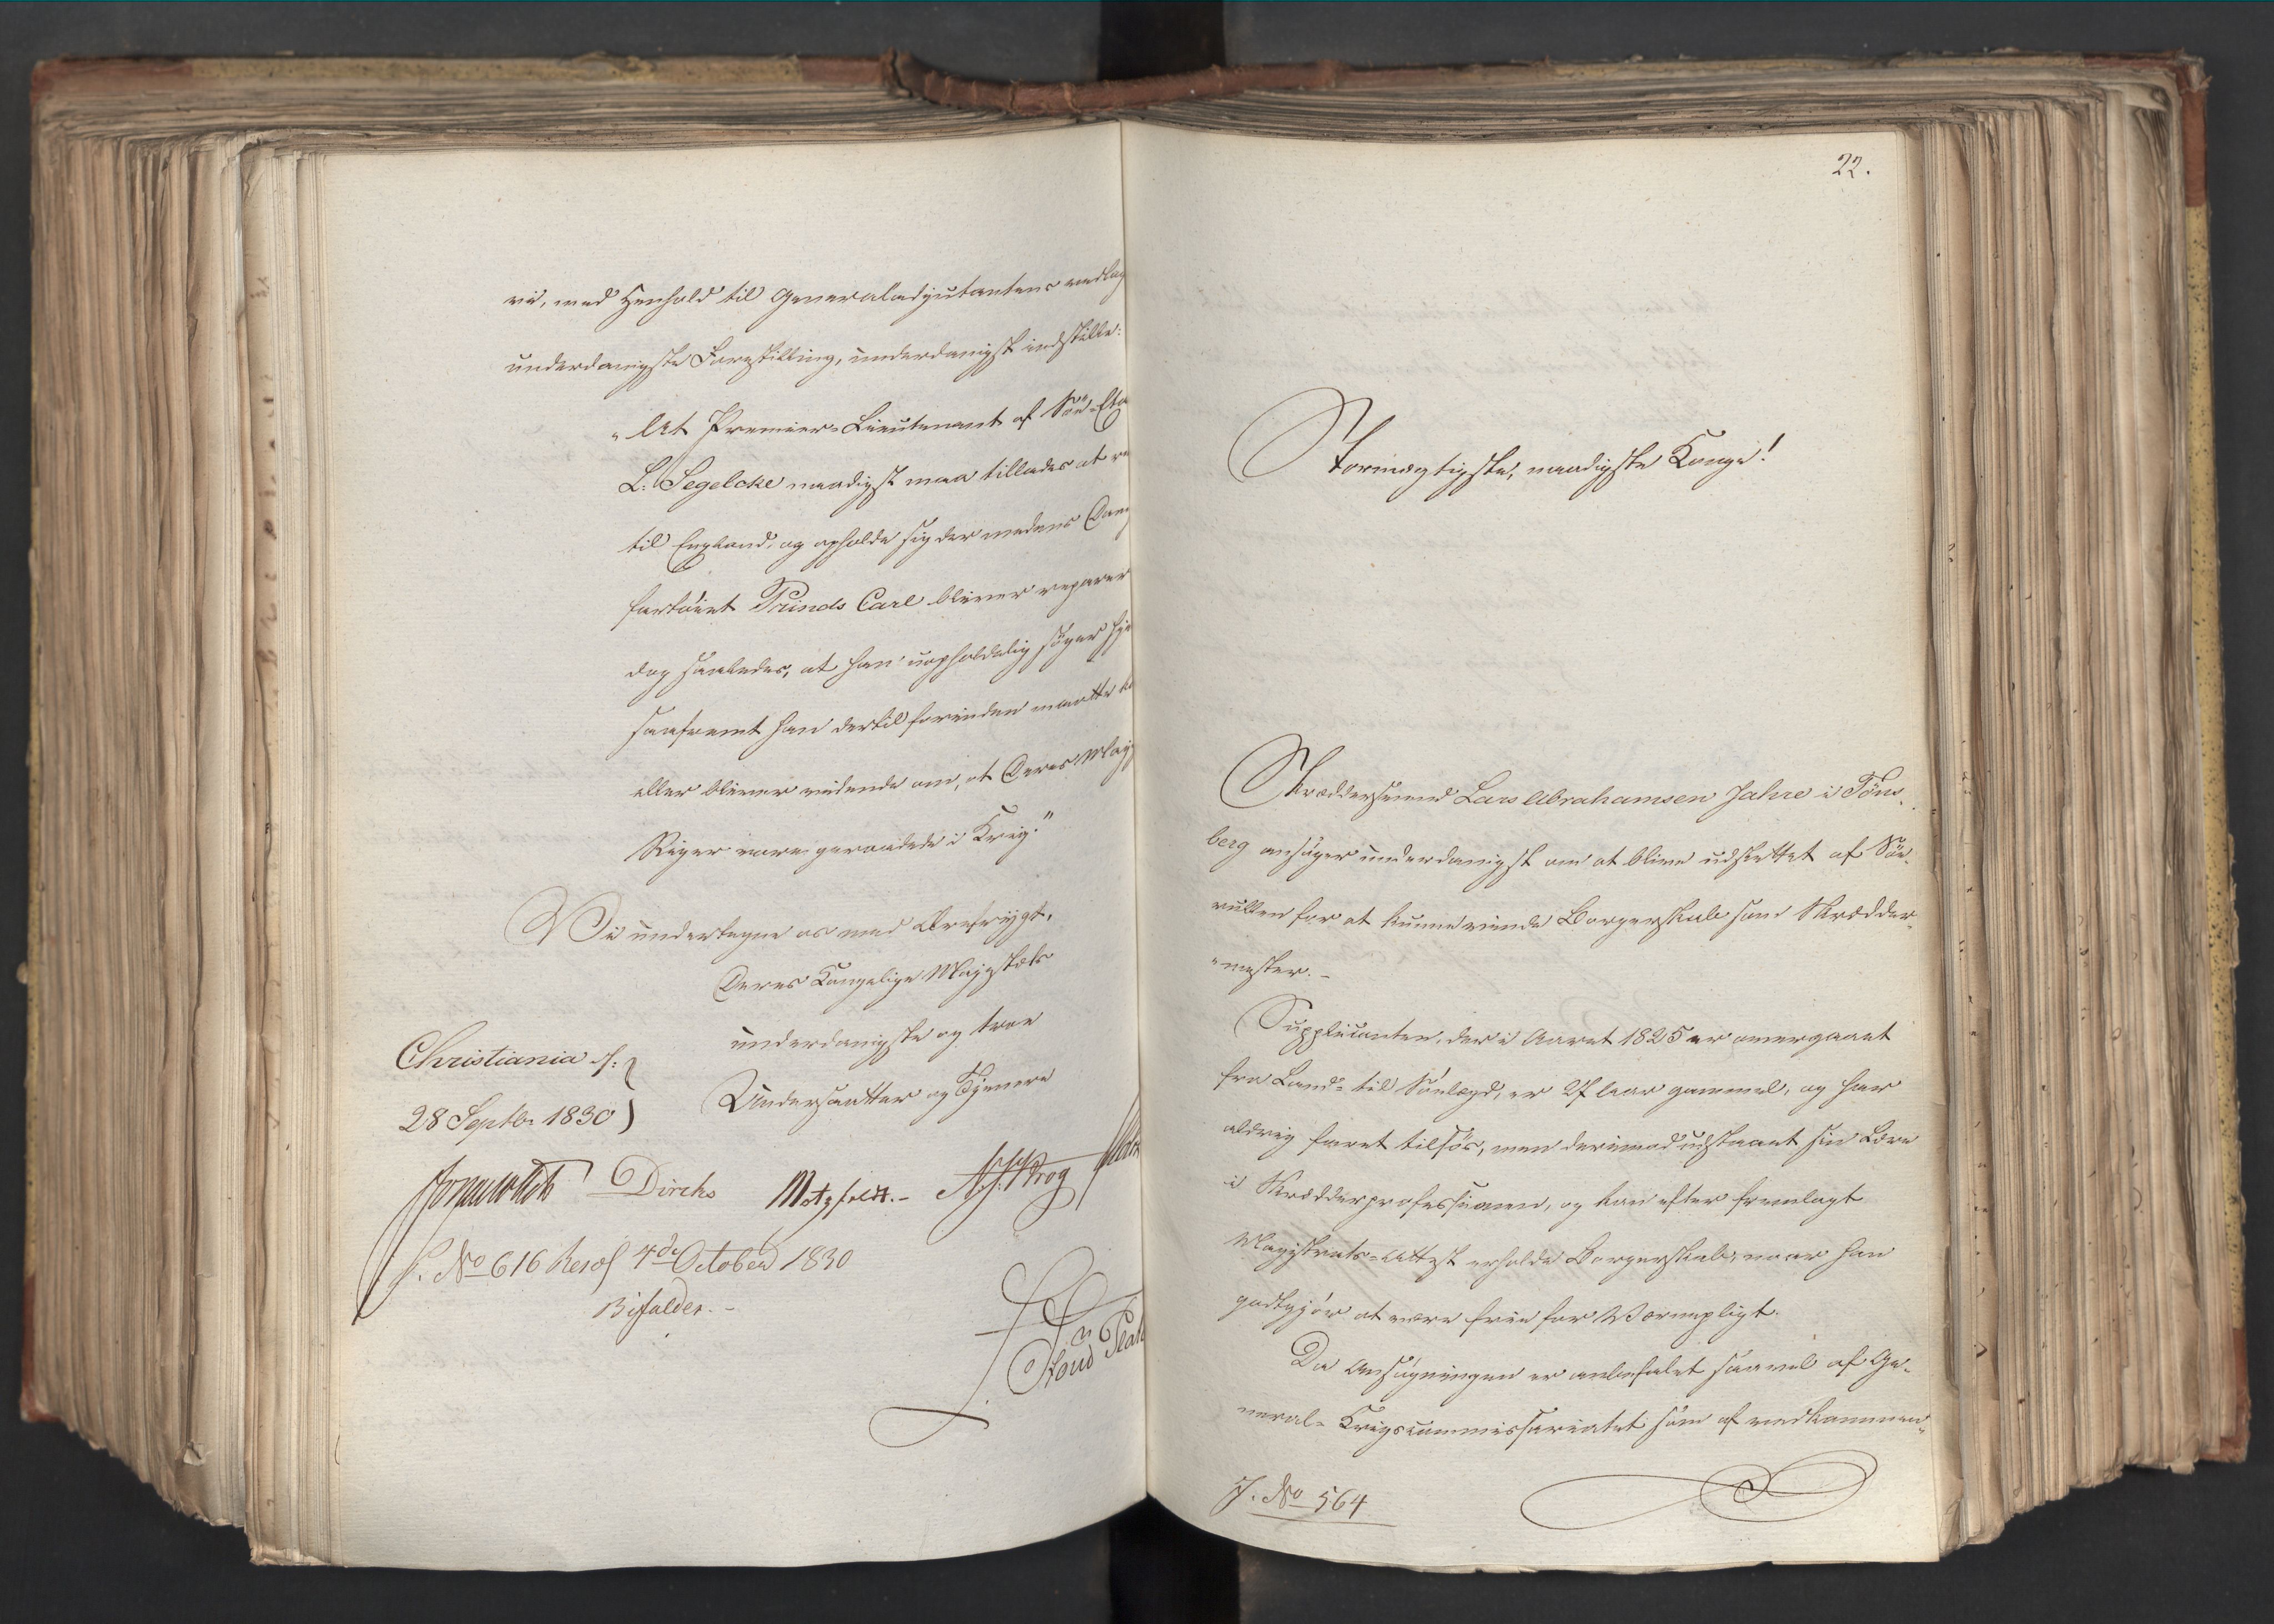 vi, med Henhold til Generaladjutantens vedlag
underdanigste Forestilling, underdanigst indstille:
"At Premier-Lieutenant af Söe-Eta
L: Segelcke naadigst maa tillades at re
til England, og opholde sig der medens Dam
fartöiet Prinds Carl bliver reparer
dog saaledes, at han uopholdelig söger hje
saafremt han dertil forinden maatte bl
eller bliver vidende om, at Deres Maje
Riger vare geraadede i Krig."
Vi undertegne os med Ærefrygt,
Deres Kongelige Majestæts
underdanigste og troe
Undersaatter og Tjenere
Christiania s:
28 Septbr 1830
Dircks Motzfeldt.- Krog
S. No 616 Resol 4de October 1830
Bifaldes.-
22.
Stormægtigste, naadigste Konge!
Skræddersvend Lars Abrahamsen Jahre i Töns-
berg ansöger underdanigst om at blive udslettet af Söe-
rullen for at kunne vinde Borgerskab som Skrædder-
"mester.-
Supplicanten, der i Aaret 1825 er overgaaet
fra Land- til Söelægd, er 27 Aar gammel, og har
aldrig faret tilsös, men derimod udstaaet sin Lære
i Skrædderprofessionen, og kan efter fremlagt
Magistrats-Attest erholde Borgerskab, naar han
godtgjör at være frie for Værnepligt.
Da Ansögningen er anbefalet saavel af Ge-
neral-Krigscommissariatet som af vedkommen-
J. No 564